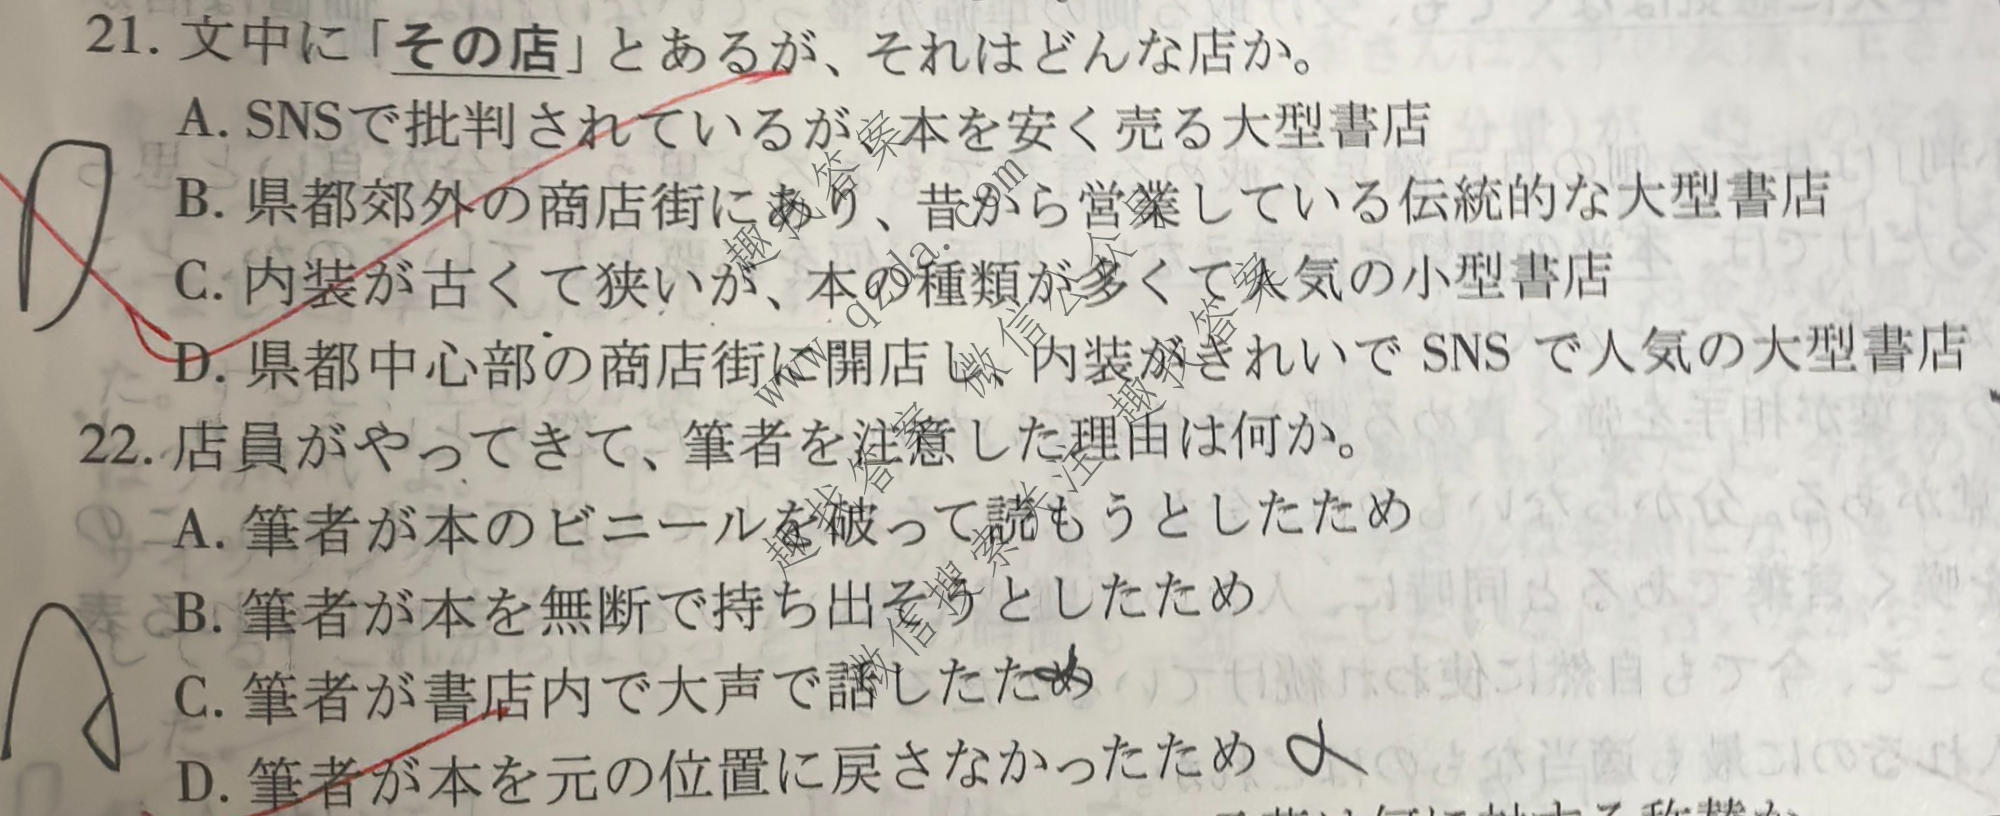 21. 文中に「その店」とあるが、それはどんな店か。
A. SNSで批判されているが、本を安く売る大型書店
B. 県都郊外の商店街にあり、昔から営業している伝統的な大型書店
C. 内装が古くて狭いが、本の種類が多くて人気の小型書店
D. 県都中心部の商店街に開店し、内装がきれいで SNS で人気の大型書店
22. 店員がやってきて、筆者を注意した理由は何か。
A. 筆者が本のビニールを破って読もうとしたため
B. 筆者が本を無断で持ち出そうとしたため
C. 筆者が書店内で大声で話したため
D. 筆者が本を元の位置に戻さなかったため
D
A
趣找答案
www.qzda.com
微信公众号
趣找答案
微信搜索关注
趣找答案